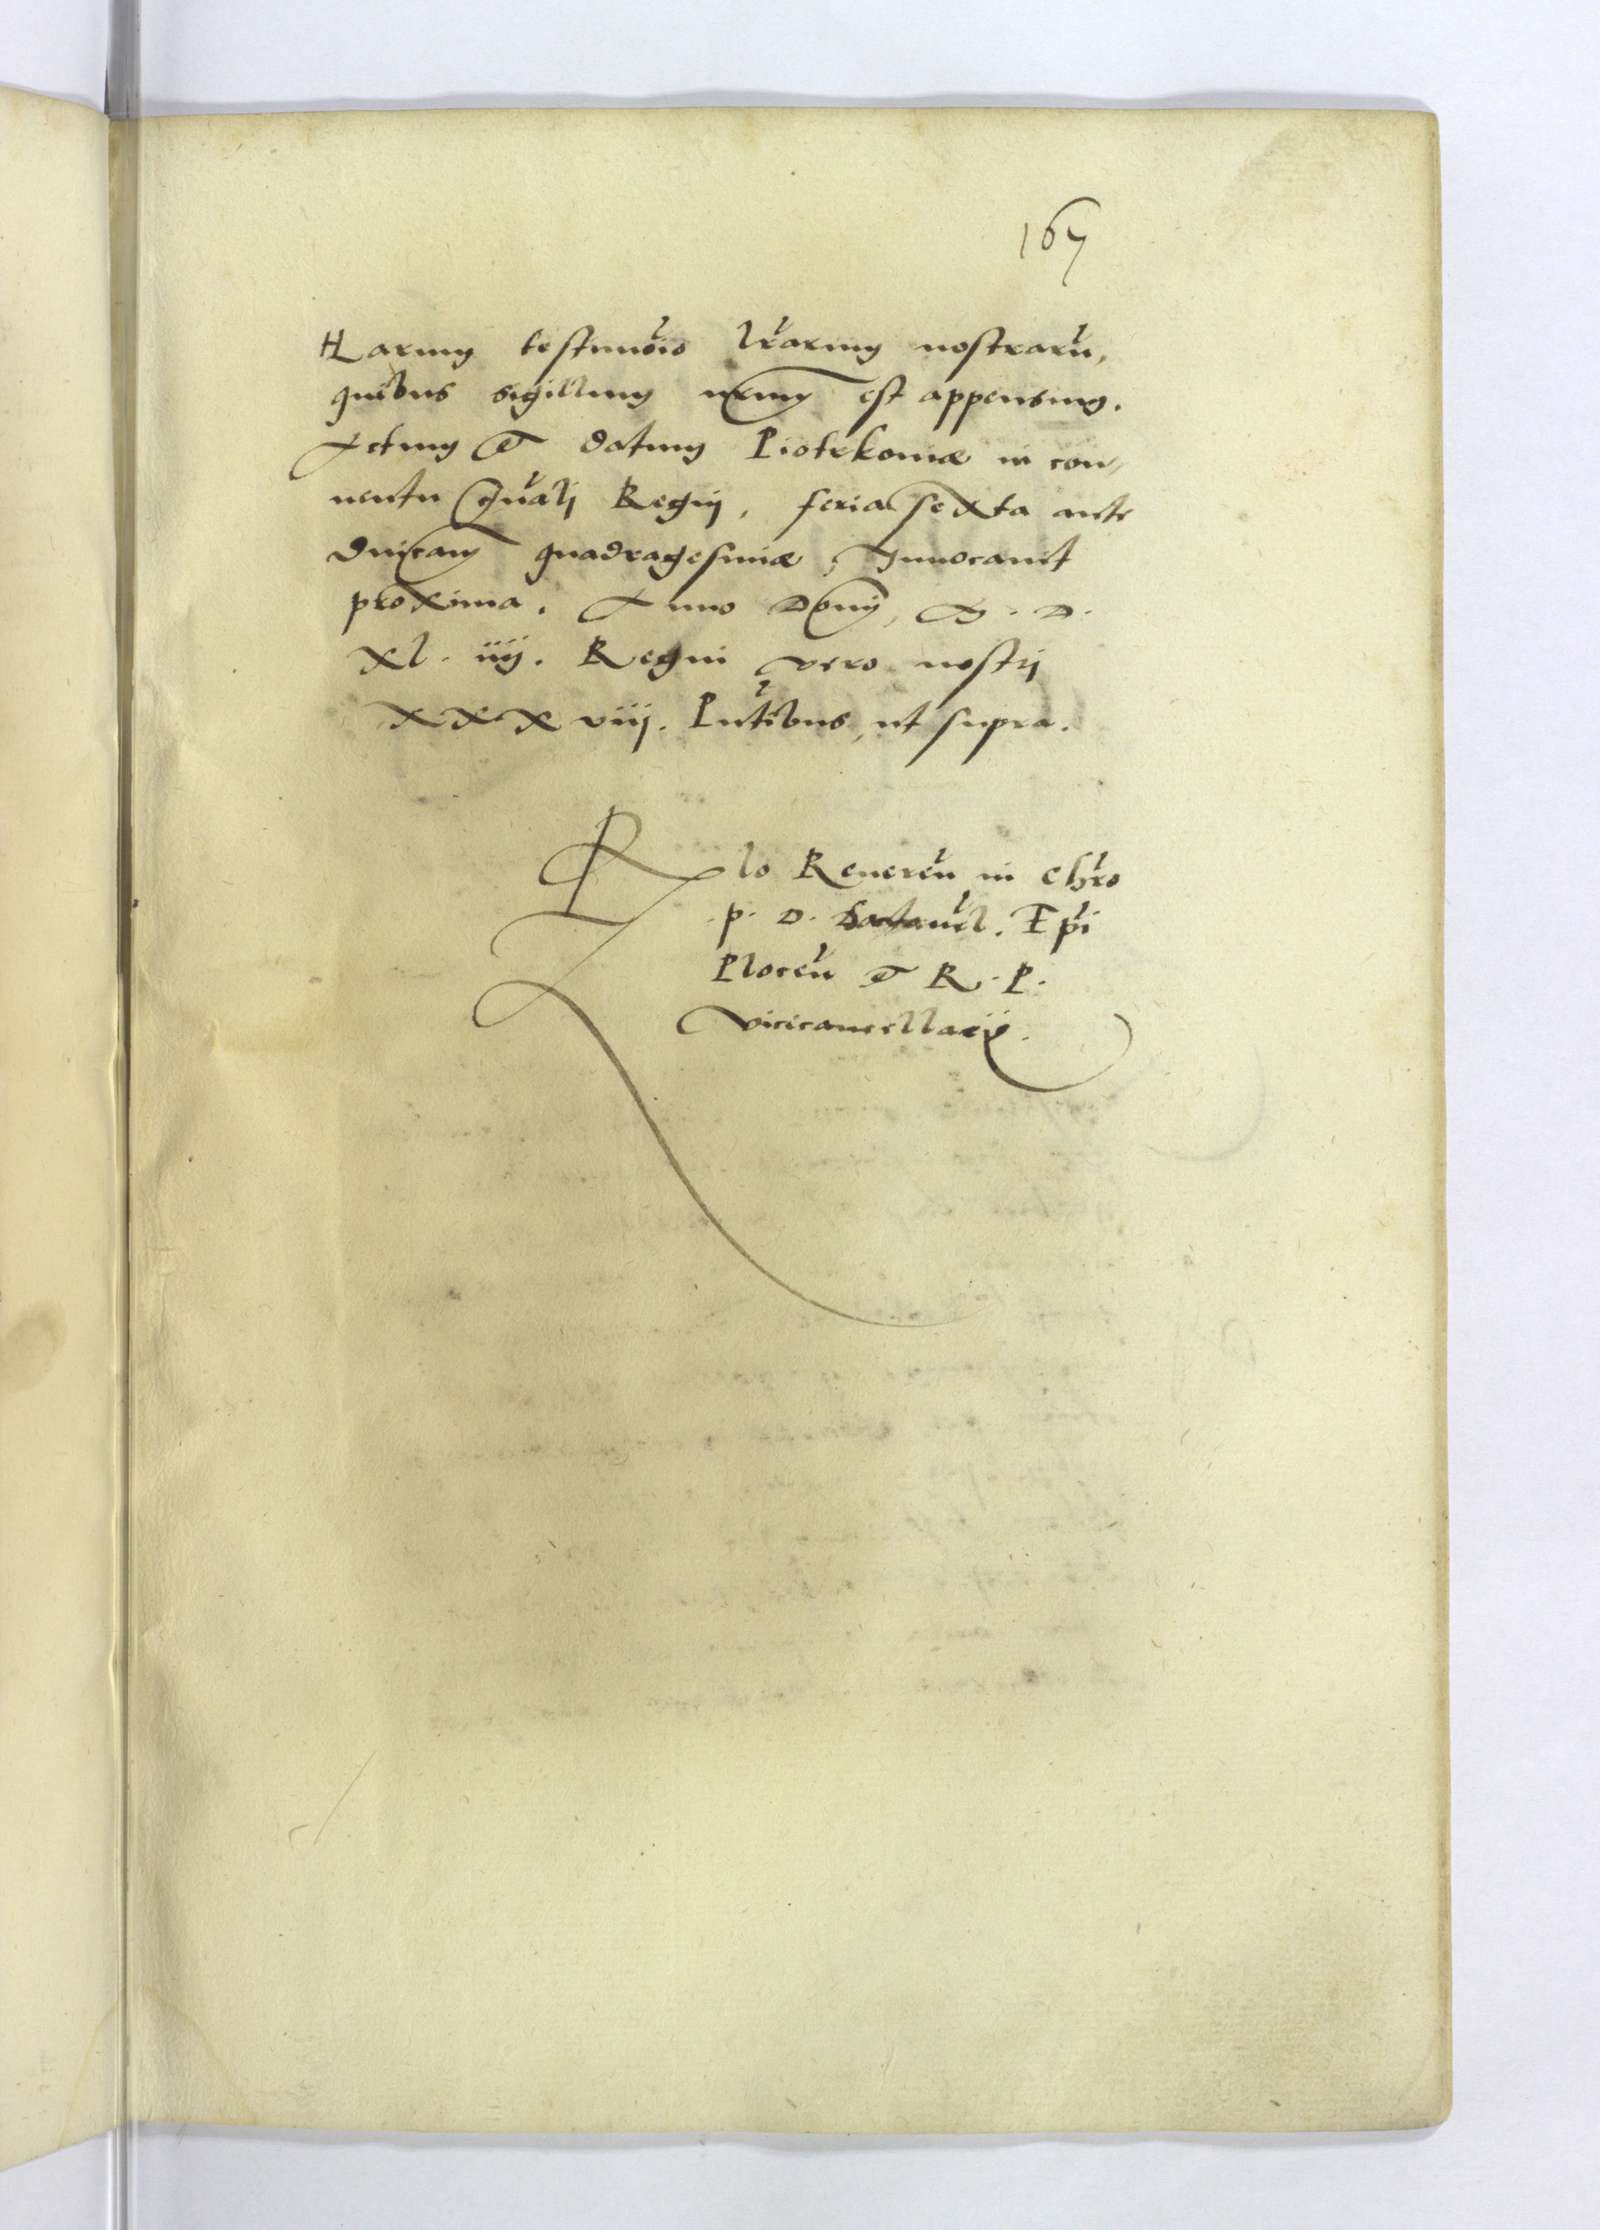 167
Harum testimoīo l̄rarum nostrarū,
quibus sigillum nr̄um est appensum.
Actum et datum Piotrkoviæ in con,
ventu gn̄ali Regnj, feria sexta ante
dn̄icam quadragesimæ, Invocavit
proxima. Anno Domj, M. D.
XL. iiij. Regni vero nostrj
XXXviij. Pn̄tibus, ut supra.
Rlo Reveren̄ in Chr̄o
p. D. Epī
Plocen̄ et R. P.
vicecancellarij.